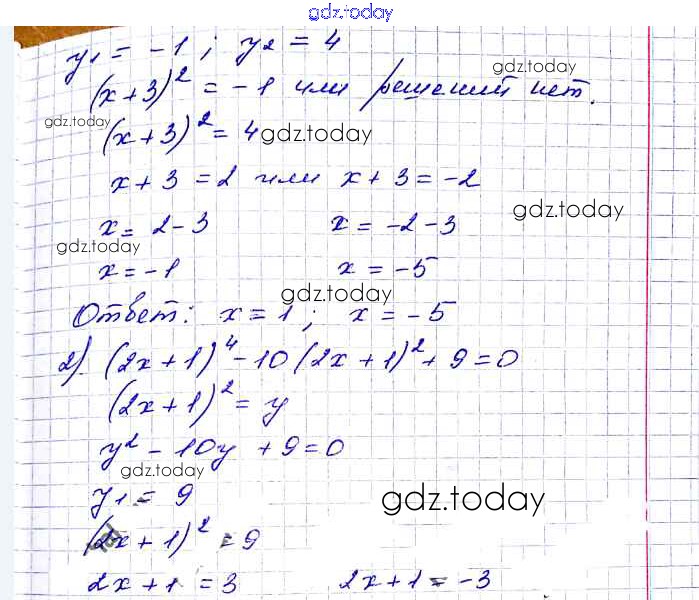 gdz.today
y₁ = -1 ; y₂ = 4
gdz.today
(x+3)² = -1 или решений нет.
gdz.today
(x+3)² = 4
gdz.today
x+3 = 2 или x+3 = -2
gdz.today
x = 2-3 x = -2-3
gdz.today
x = -1 x = -5
gdz.today
Ответ: x = 1 ; x = -5
2) (2x+1)⁴ - 10(2x+1)² + 9 = 0
(2x+1)² = y
y² - 10y + 9 = 0
gdz.today
y₁ = 9
gdz.today
(2x+1)² = 9
2x+1 = 3 2x+1 = -3